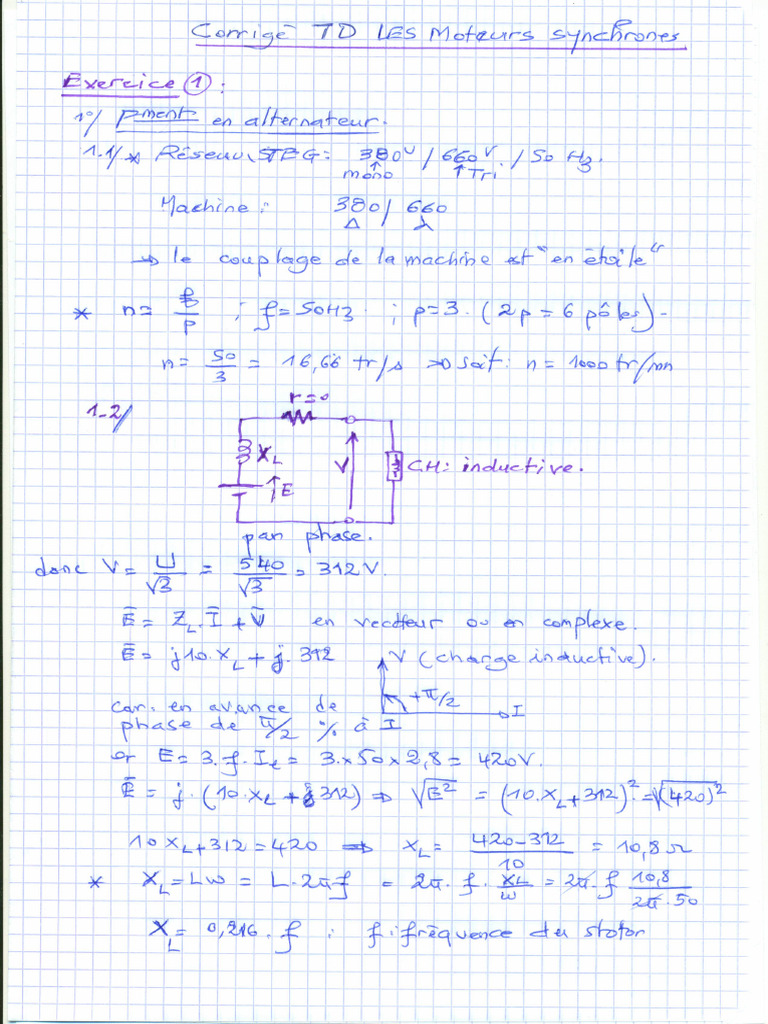 Corrigé TD LES Moteurs synchrones
Exercice ① :
1°/ Pment en alternateur.
1.1/ * Réseau STEG: 380V / 660V / 50 Hz.
mono Tri
Machine : 380 / 660
Δ λ
→ le couplage de la machine est "en étoile"
* n = f/p ; f = 50Hz ; p = 3. (2p = 6 pôles) -
n = 50/3 = 16,66 tr/s → soit : n = 1000 tr/mn
1-2/
r=0
XL
E
V
CH: inductive.
par phase.
donc V = U/√3 = 540/√3 = 312 V.
Ē = ZL.Ī + V̄ en vecteur ou en complexe.
Ē = j10.XL + j.312 V (charge inductive).
+π/2
I
car en avance de
phase de π/2 % à I
or E = 3.f.Ie = 3.×50×2,8 = 420V.
Ē = j.(10.XL + 312) ⇒ √E² = (10.XL + 312)² = √(420)²
10XL + 312 = 420 ⇒ XL = 420-312/10 = 10,8 Ω
* XL = Lω = L.2πf = 2π.f.XL/ω = 2π.f 10,8/2π.50
XL = 0,216.f ; f : fréquence du stator